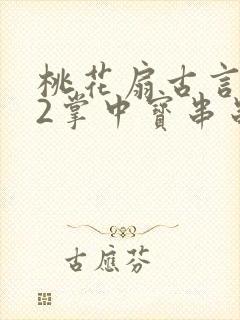 桃花扇古言
2掌中寶串
古應芬